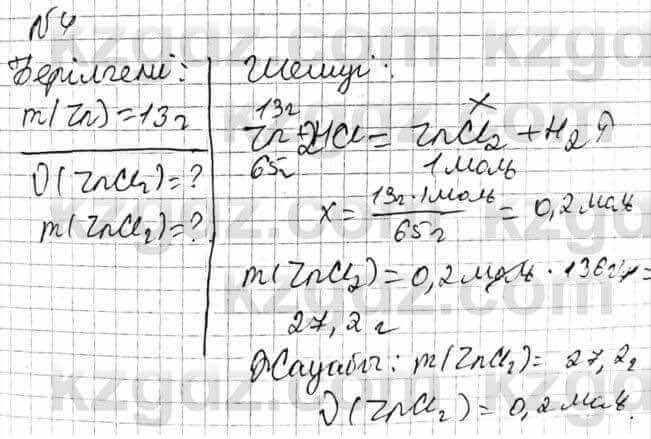 №4
Берілгені:
m(Zn)=13г
υ(ZnCl₂)=?
m(ZnCl₂)=?
Шешуі:
13г x
Zn+2HCl=ZnCl₂+H₂↑
65г 1моль
x = 13г·1моль / 65г = 0,2моль
m(ZnCl₂)=0,2моль·136г/м=
27,2г
Жауабы: m(ZnCl₂)=27,2г
υ(ZnCl₂)=0,2моль.
kzgdz.com